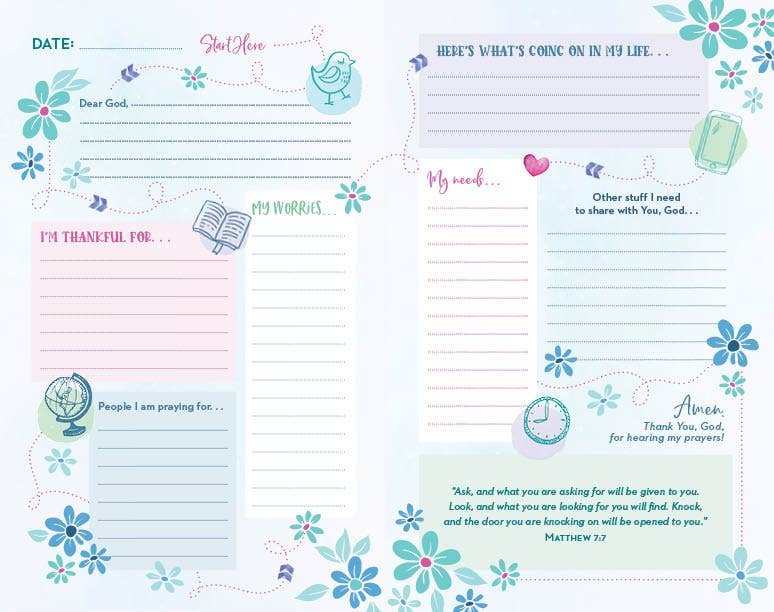 DATE:
Start Here
Dear God,
I'M THANKFUL FOR. . .
MY WORRIES. . .
People I am praying for. . .
HERE'S WHAT'S GOING ON IN MY LIFE. . .
My needs. . .
Other stuff I need
to share with You, God. . .
Amen.
Thank You, God,
for hearing my prayers!
“Ask, and what you are asking for will be given to you.
Look, and what you are looking for you will find. Knock,
and the door you are knocking on will be opened to you.”
MATTHEW 7:7